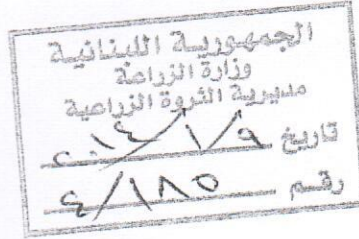 الجمهورية اللبنانية
وزارة الزراعة
مديرية الثروة الزراعية
تاريخ ٢٠١٤/١/٩
رقم ٤/١٨٥